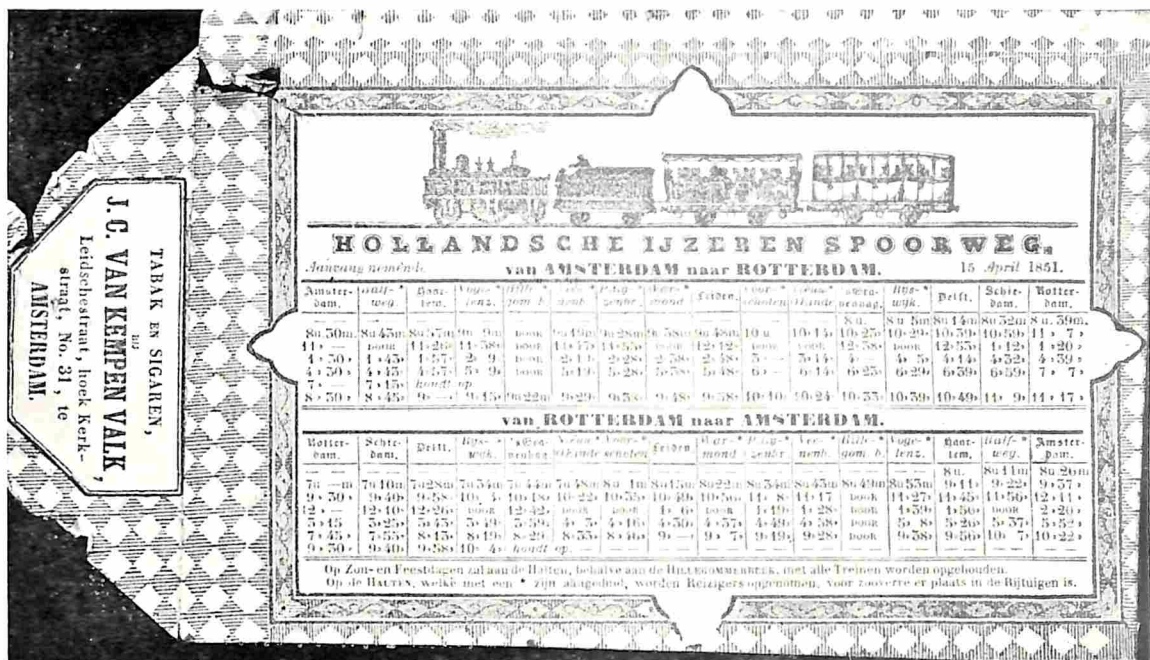 TABAK EN SIGAREN,
BIJ
J. C. VAN KEMPEN VALK,
Leidschestraat, hoek Kerk-
straat, No. 31, te
AMSTERDAM.
HOLLANDSCHE IJZEREN SPOORWEG.
Aanvang nemende van AMSTERDAM naar ROTTERDAM. 15 April 1851.
Amster-dam. Half-weg.* Haar-lem. Voge-lenz.* Hille-gom. b.* Vee-nenb.* Piet-gyzenbr.* War-mond.* Leiden. Voor-schoten.* Veen-*enkinde. 'sGra-venhag. Rys-wijk.* Delft. Schie-dam. Rotter-dam.
8 u. 8 u 5m 8u 14m 8u 32m 8 u. 39m.
8u 30m 8u 43m 8u 57m 9u 9m DOOR 9u 19m 9u 28m 9u 38m 9u 48m 10 u. 10›14› 10›23› 10›29› 10›39› 10›59› 11 › 7 ›
11 › — DOOR 11›26› 11›38› DOOR 12›12› DOOR DOOR 12›38› DOOR 12›53› 1›12› 1 ›20 ›
1 ›30 › 1 ›43› 1›57› 2› 9 DOOR 2›28› 2›38› 2›48› 3 › — 3›14› 4› 5› 4›14› 4›32› 4 ›39 ›
4 ›30 › 4 ›43› 4›57› 5› 9› DOOR 5›19› 5›28› 5›38› 5›48› 6 › — 6›14› 6›23› 6›29› 6›39› 6›59› 7 › 7›
7 › — 7 ›15› houdt op.
8 ›30 › 8 ›45› 9› —› 9›15› 9u22m 9›29› 9›38› 9›48› 9›58› 10›10› 10›24› 10›33› 10›39› 10›49› 11› 9› 11 ›17 ›
van ROTTERDAM naar AMSTERDAM.
Rotter-dam. Schie-dam. Delft. Rys-*wijk. 'sGra-venhag. Veen-*enkinde Voor-*schoten Leiden. War-*mond P.t.g-*zenbr Vee-*nenb. Hille-*gom b. Voge-*lenz. Haar-lem. Half-*weg. Amster-dam.
8 u. 8u 11m 8u 26m
7u —m 7u 10m 7u28m 7u34m 7u 44m 7u 48m 8u 1m 8u15m 8u 22m 8u 34m 8u 43m 8u 49m 8u 53m 9›11› 9› 22› 9 › 37 ›
9 › 30 › 9› 40› 9›58› 10› 4› 10›18› 10›22› 10›35› 10› 49› 10›56› 11› 8› 11›17 DOOR 11›27› 11›45› 11›56› 12›11 ›
12 › — 12›10› 12›26› DOOR 12›42› DOOR DOOR 1› 6› DOOR 1›19› 1› 28› DOOR 1›39› 1›56› DOOR 2 ›20 ›
3 ›15 3› 25› 3› 43› 3› 49› 3›59› 4› 3› 4›16› 4›30› 4›37› 4›49› 4›58› DOOR 5› 8› 5›26› 5› 37› 5 ›52 ›
7 › 45 › 7› 55› 8›13› 8›19› 8›29› 8›33› 8›46› 9› —› 9› 7› 9›19› 9›28› DOOR 9›38› 9›56› 10› 7› 10 ›22 ›
9 › 30 › 9› 40› 9›58› 10› 4› houdt op.
Op Zon- en Feestdagen zal aan de Halten, behalve aan de HILLEGOMMERBEEK, met alle Treinen worden opgehouden.
Op de HALTEN, welke met een * zijn aangeduid, worden Reizigers opgenomen, voor zooverre er plaats in de Rijtuigen is.